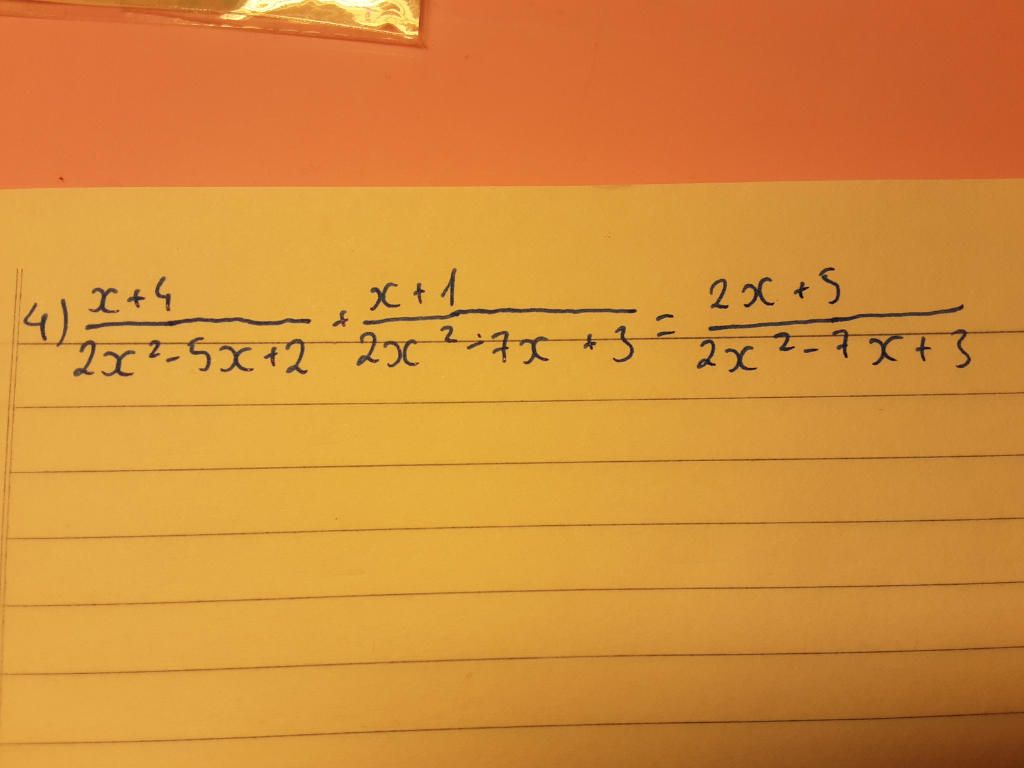 4) \frac{x+4}{2x^2-5x+2} + \frac{x+1}{2x^2-7x+3} = \frac{2x+5}{2x^2-7x+3}